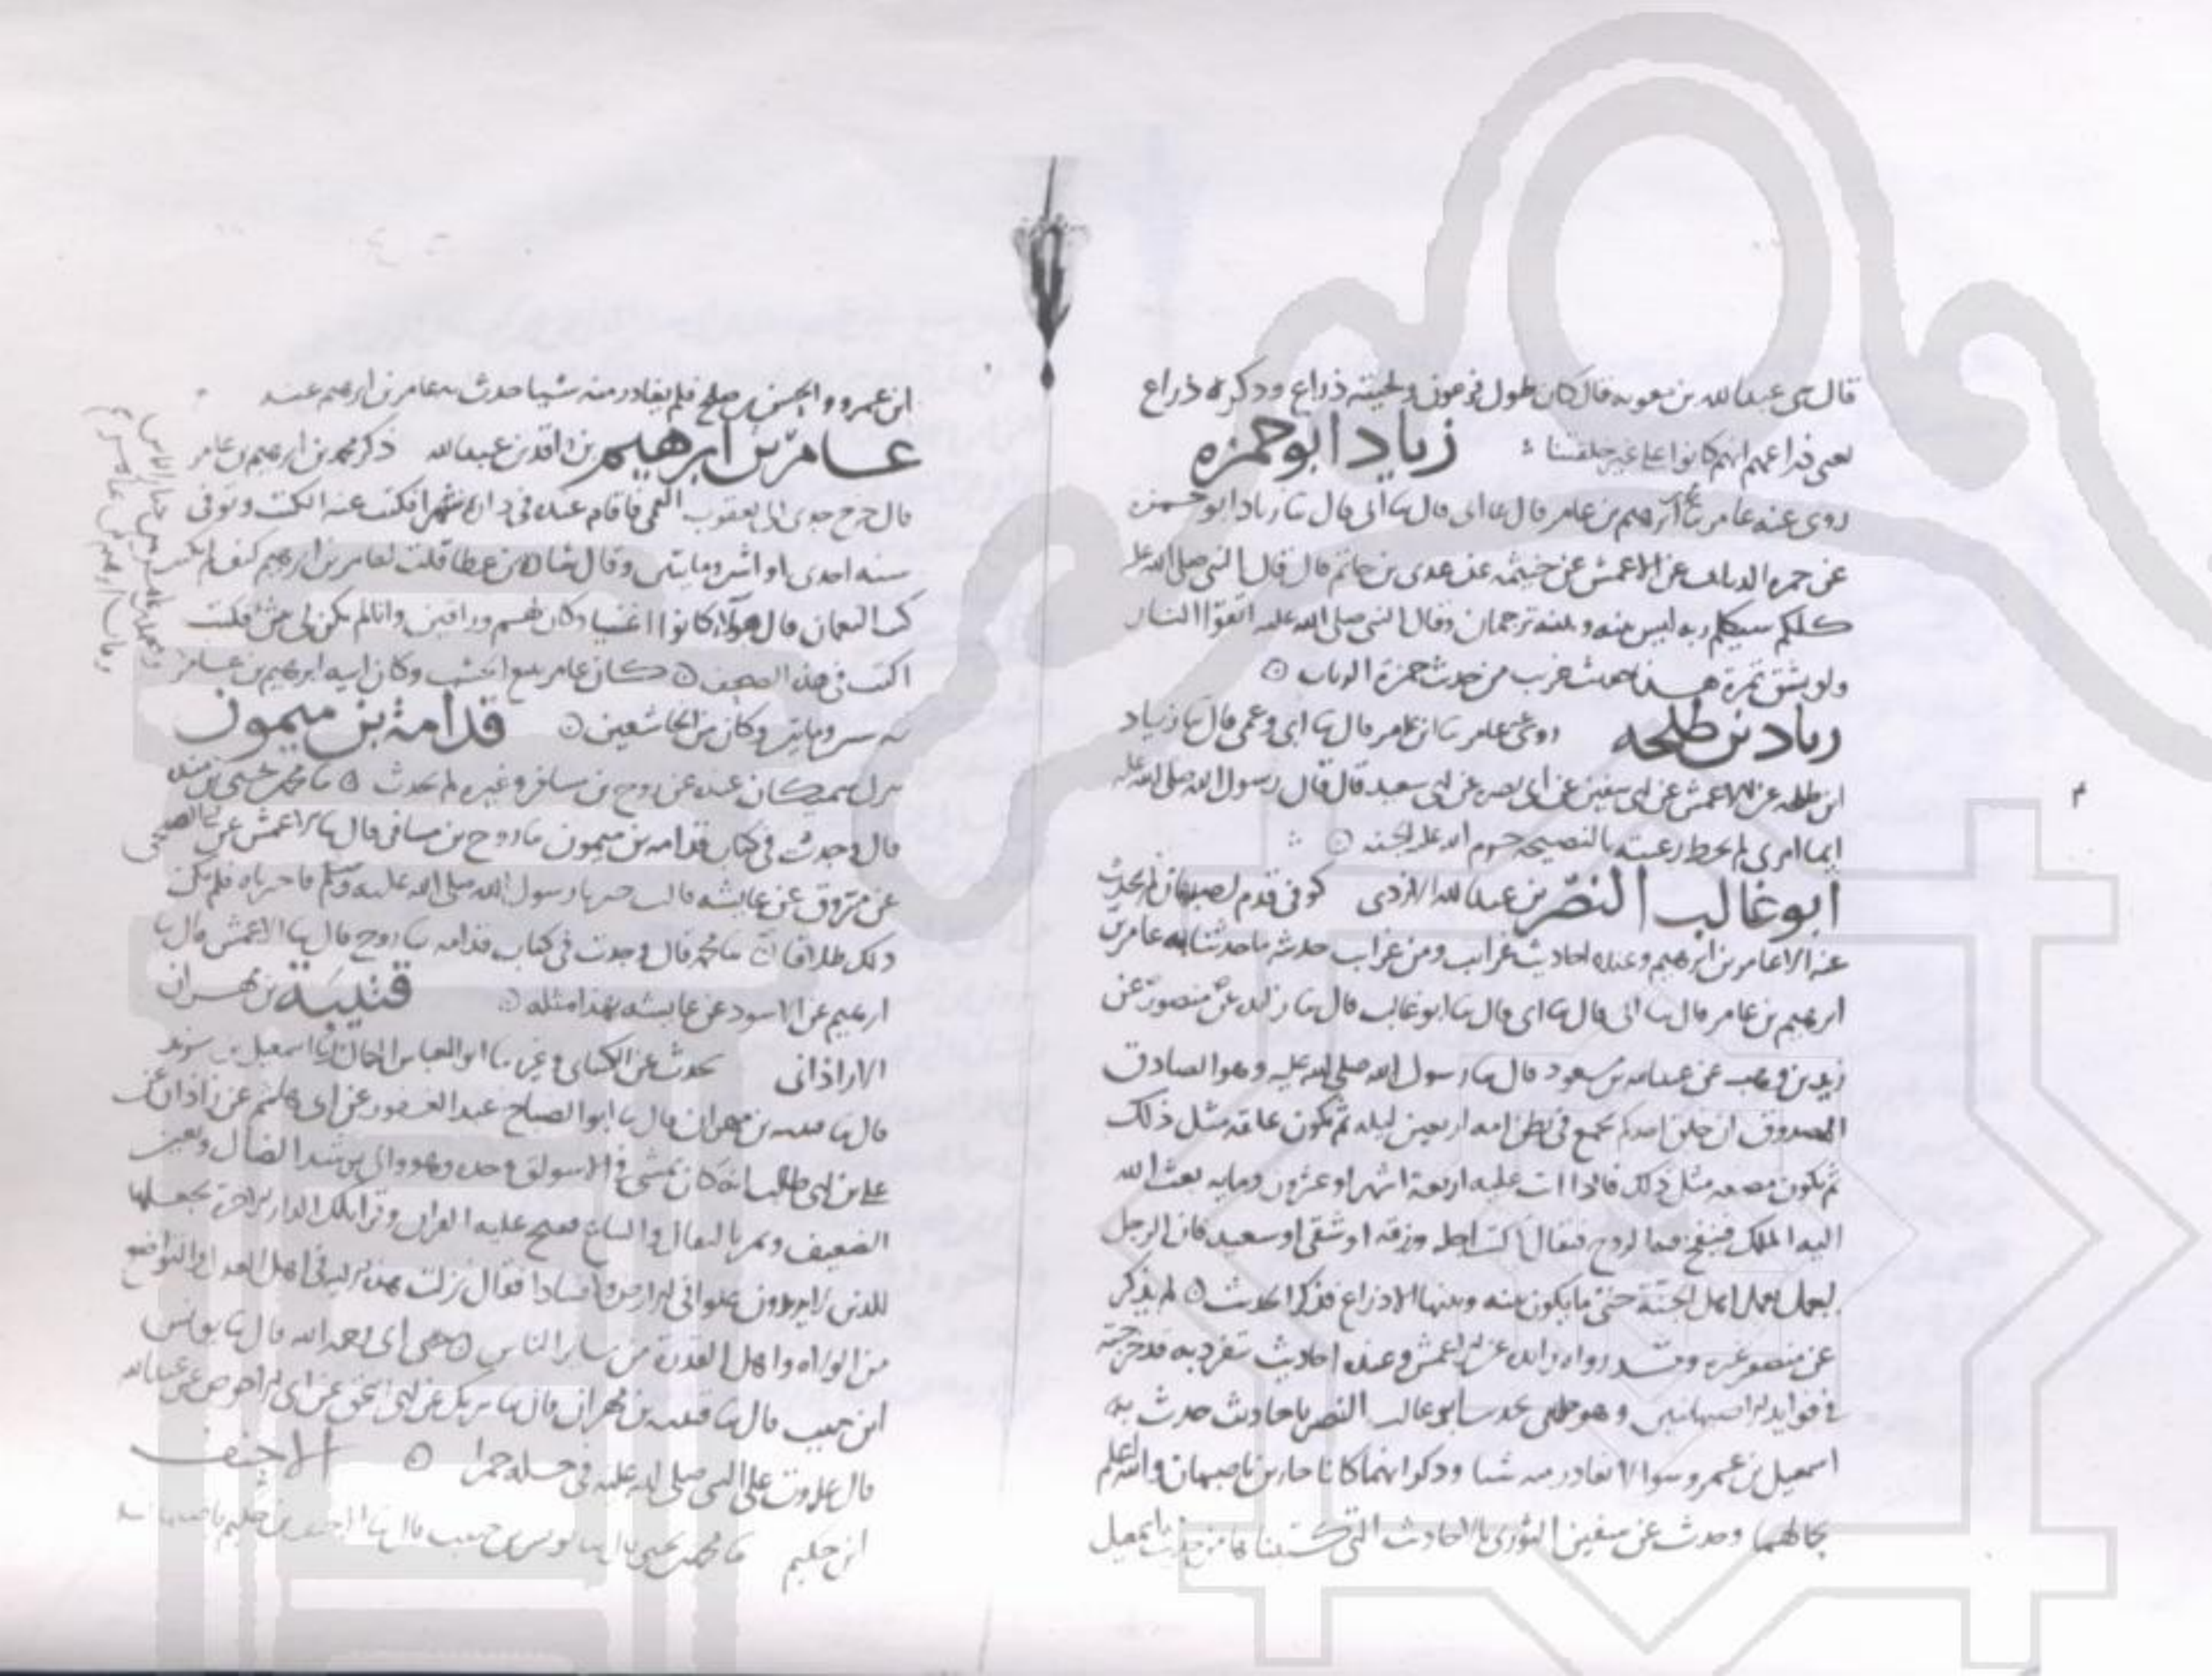 قال حى عبد الله بن معويه قال كان طول فرعون ولحيته ذراع وذكره ذراع
يعنى ذراعهم انهم كانوا على غير خلقتنا زياد ابو حمزه
روى عنه عامر ثنا ابرهيم بن عامر قال ثنا ابى قال ثنا ابى قال ثنا زياد ابو حمزه
عن حمزه الزيات عن الاعمش عن خيثمه عن عدى بن حاتم قال قال النبى صلى الله عليه
كلكم سيكلم ربه ليس بينه وبينه ترجمان وقال النبى صلى الله عليه اتقوا النار
ولو بشق تمرة هذا حديث غريب من حديث حمزة الزيات
زياد بن طلحه روى عنه عامر ثنا ابن عامر قال ثنا ابى وعمى قال ثنا زياد
ابن طلحه عن الاعمش عن ابى سفين عن ابى نضره عن ابى سعيد قال قال رسول الله صلى الله عليه
ايما امرى لم يحط رعيته بالنصيحه حرم الله عليه الجنه
ابو غالب النضر بن عبد الله الازدى كوفى قدم اصبهان لم يحدث
عنه الا عامر بن ابرهيم وعنده احاديث غرايب ومن غرايب حديثه ما حدثنا به عامر بن
ابرهيم بن عامر قال ثنا ابى قال ثنا ابى قال ثنا ابو غالب قال ثنا زايده عن منصور عن
زيد بن وهب عن عبد الله بن مسعود قال ثنا رسول الله صلى الله عليه وهو الصادق
المصدوق ان خلق احدكم يجمع فى بطن امه اربعين ليله ثم يكون علقه مثل ذلك
ثم يكون مضغه مثل ذلك فاذا اتت عليه اربعة اشهر او عشرون ومايه بعث الله
اليه الملك فينفخ فيه الروح فيقال اكتب اجله ورزقه او شقى او سعيد فان الرجل
ليعمل بعمل اهل الجنة حتى ما يكون بينه وبينها الا ذراع فذكر الحديث لم يذكر
عن منصور غيره وقد رواه زايده عن الاعمش وعنده احاديث يتفرد به قد خرجته
فى فوايد الاصبهانيين ابو غالب النضر باحاديث حدث به
اسمعيل بن عمرو سوا لا يغادر منه شيا وذكر انهما كانا جارين باصبهان والله اعلم
بحالهما وحدث عن سفين الثورى بالاحاديث التى كتبناها من حديث اسمعيل
ابن عمرو والحسن بن صلح فلم يغادر منه شيا حدث به عامر بن ابرهيم عنه
عامر بن ابرهيم بن واقد بن عبد الله ذكر محمد بن ابرهيم بن عامر
قال خرج جدى الى يعقوب القمى فاقام عنده فى داره شهرا فكتب عنه الكتب وتوفى
سنه احدى او اثنين ومايتين وقال شاذه بن عطا قلت لعامر بن ابرهيم كيف لم تكتب
كتب النعمان قال هولاء كانوا اغنيا وكان لهم وراقين وانا لم يكن لى شى فكنت
اكتب فى هذه الصحف كان عامر يبيع الخشب وكان ابنه ابرهيم بن عامر
ومايتين وكان من الخاشعين قدامة بن ميمون
كان عنده عن روح بن مسافر وغيره لم يحدث ثنا محمد بن يحيى بن منده
قال وجدت فى كتاب قدامه بن ميمون ثنا روح بن مسافر قال ثنا الاعمش عن ابى الضحى
عن مسروق عن عايشه قالت خيرنا رسول الله صلى الله عليه وسلم فاخترناه فلم يكن
ذلك طلاقا ثنا محمد قال وجدت فى كتاب قدامه ثنا روح قال ثنا الاعمش قال ثنا
ابرهيم عن الاسود عن عايشه بهذا مثله قتيبة بن مهران
الازاذانى يحدث عن الكساى وغيره ثنا ابو العباس الجمال ثنا اسمعيل بن يزيد
قال ثنا قتيبه بن مهران قال ثنا ابو الصباح عبد الغفور عن ابى هاشم عن زاذان عن
على بن ابى طالب انه كان يمشى فى الاسواق وحده وهو والى يرشد الضال ويعين
الضعيف ويمر بالبقال والبياع فيفتح عليه القران ويقرا تلك الدار الاخرة نجعلها
للذين لا يريدون علوا فى الارض ولا فسادا فقال نزلت هذه الاية فى اهل العدل والتواضع
من الولاه واهل القدرة من ساير الناس حدثنى ابى رحمه الله قال ثنا يونس
ابن حبيب قال ثنا قتيبه بن مهران قال ثنا شريك عن ابى اسحق عن ابى الاحوص عن عبد الله
قال على النبى صلى الله عليه فى حله حمرا الاحنف
ابن حكيم ثنا محمد بن يحيى قال ثنا يونس بن حبيب قال ثنا الاحنف بن حكيم باصبهان